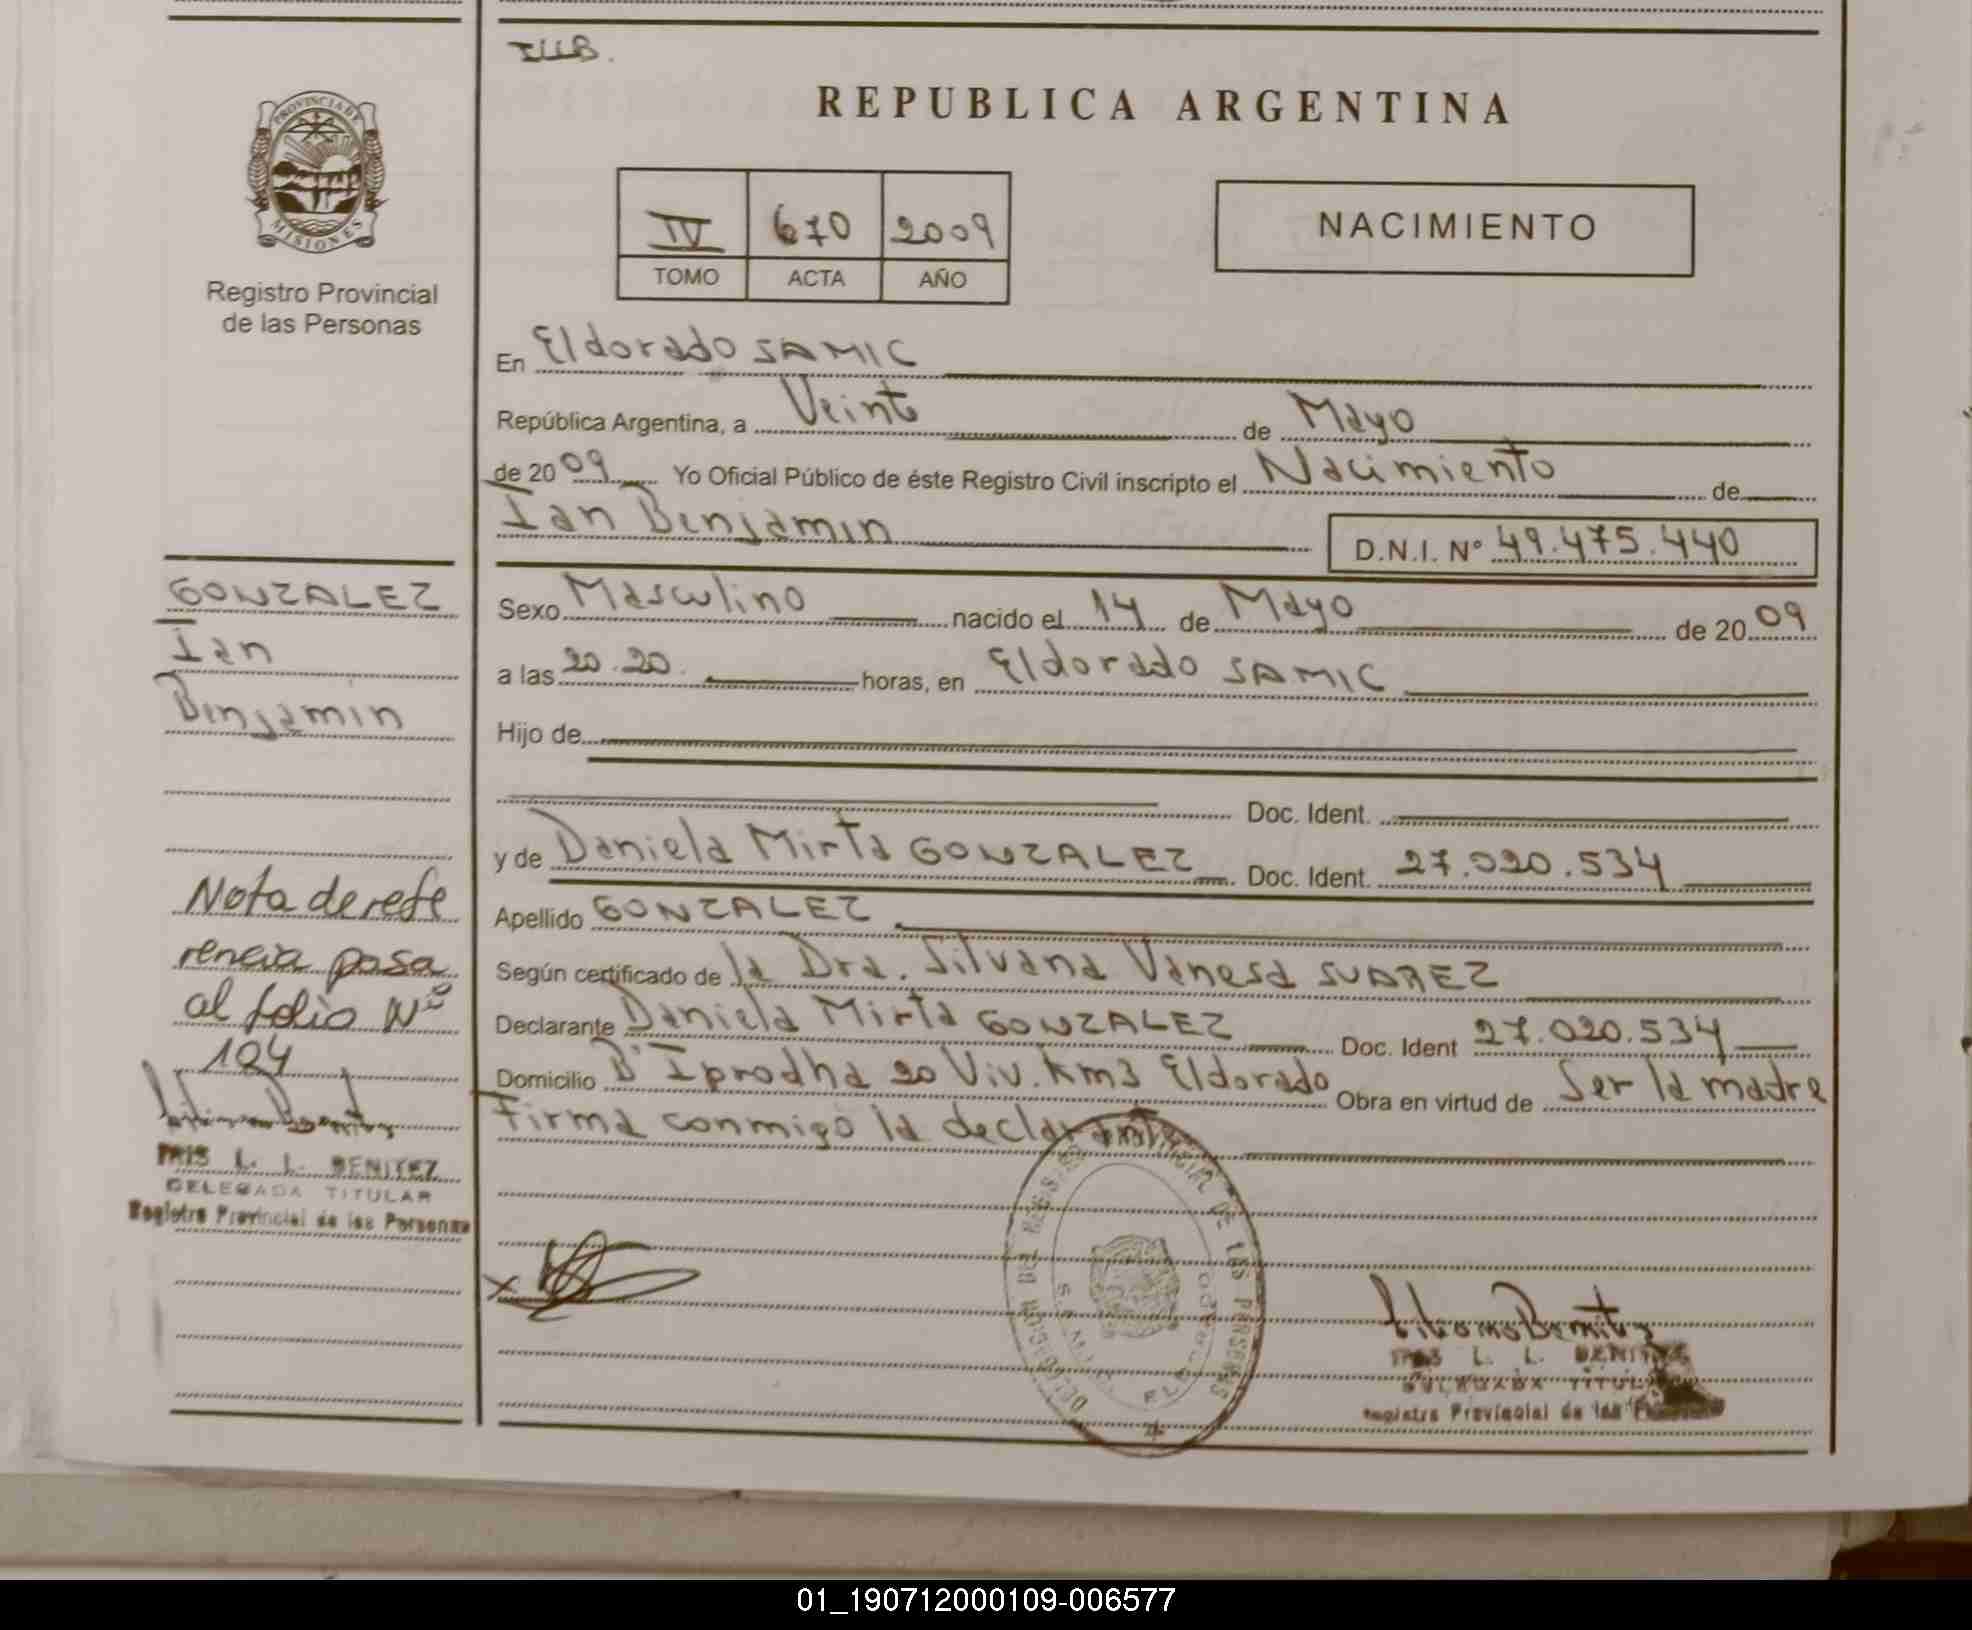 ILLB.
REPUBLICA ARGENTINA
PROVINCIA DE MISIONES
Registro Provincial
de las Personas
IV 670 2009
TOMO ACTA AÑO
NACIMIENTO
En Eldorado SAMIC
República Argentina, a Veinte de Mayo
de 2009 Yo Oficial Público de éste Registro Civil inscripto el Nacimiento de
Ian Benjamin D.N.I. Nº 49.475.440
Sexo Masculino nacido el 14 de Mayo de 2009
a las 20.20. horas, en Eldorado SAMIC
Hijo de
Doc. Ident.
y de Daniela Mirta GONZALEZ Doc. Ident. 27.020.534
Apellido GONZALEZ
Según certificado de la Dra. Silvana Vanesa SUAREZ
Declarante Daniela Mirta GONZALEZ Doc. Ident 27.020.534
Domicilio Bº Iprodha 20 Viv. Km3 Eldorado Obra en virtud de Ser la madre
Firma conmigo la declarante
GONZALEZ
Ian
Benjamin
Nota de refe
rencia pasa
al folio Nº
104
IRIS L. L. BENITEZ
DELEGADA TITULAR
Registro Provincial de las Personas
X
DELEGACION DEL REGISTRO PROVINCIAL DE LAS PERSONAS
IRIS L. L. BENITEZ
DELEGADA TITULAR
Registro Provincial de las Personas
01_190712000109-006577